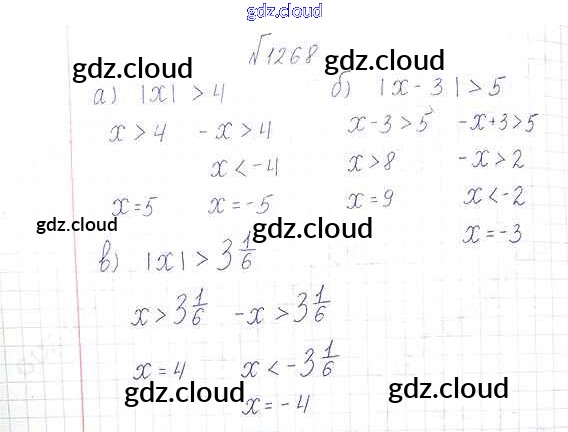 gdz.cloud
№1268
gdz.cloud gdz.cloud
а) |x| > 4 б) |x - 3| > 5
x > 4 - x > 4 x - 3 > 5 - x + 3 > 5
x < - 4 x > 8 - x > 2
x = 5 x = - 5 x = 9 x < - 2
gdz.cloud gdz.cloud
x = - 3
в) |x| > 3 1/6
x > 3 1/6 - x > 3 1/6
x = 4 x < - 3 1/6
gdz.cloud gdz.cloud
x = - 4